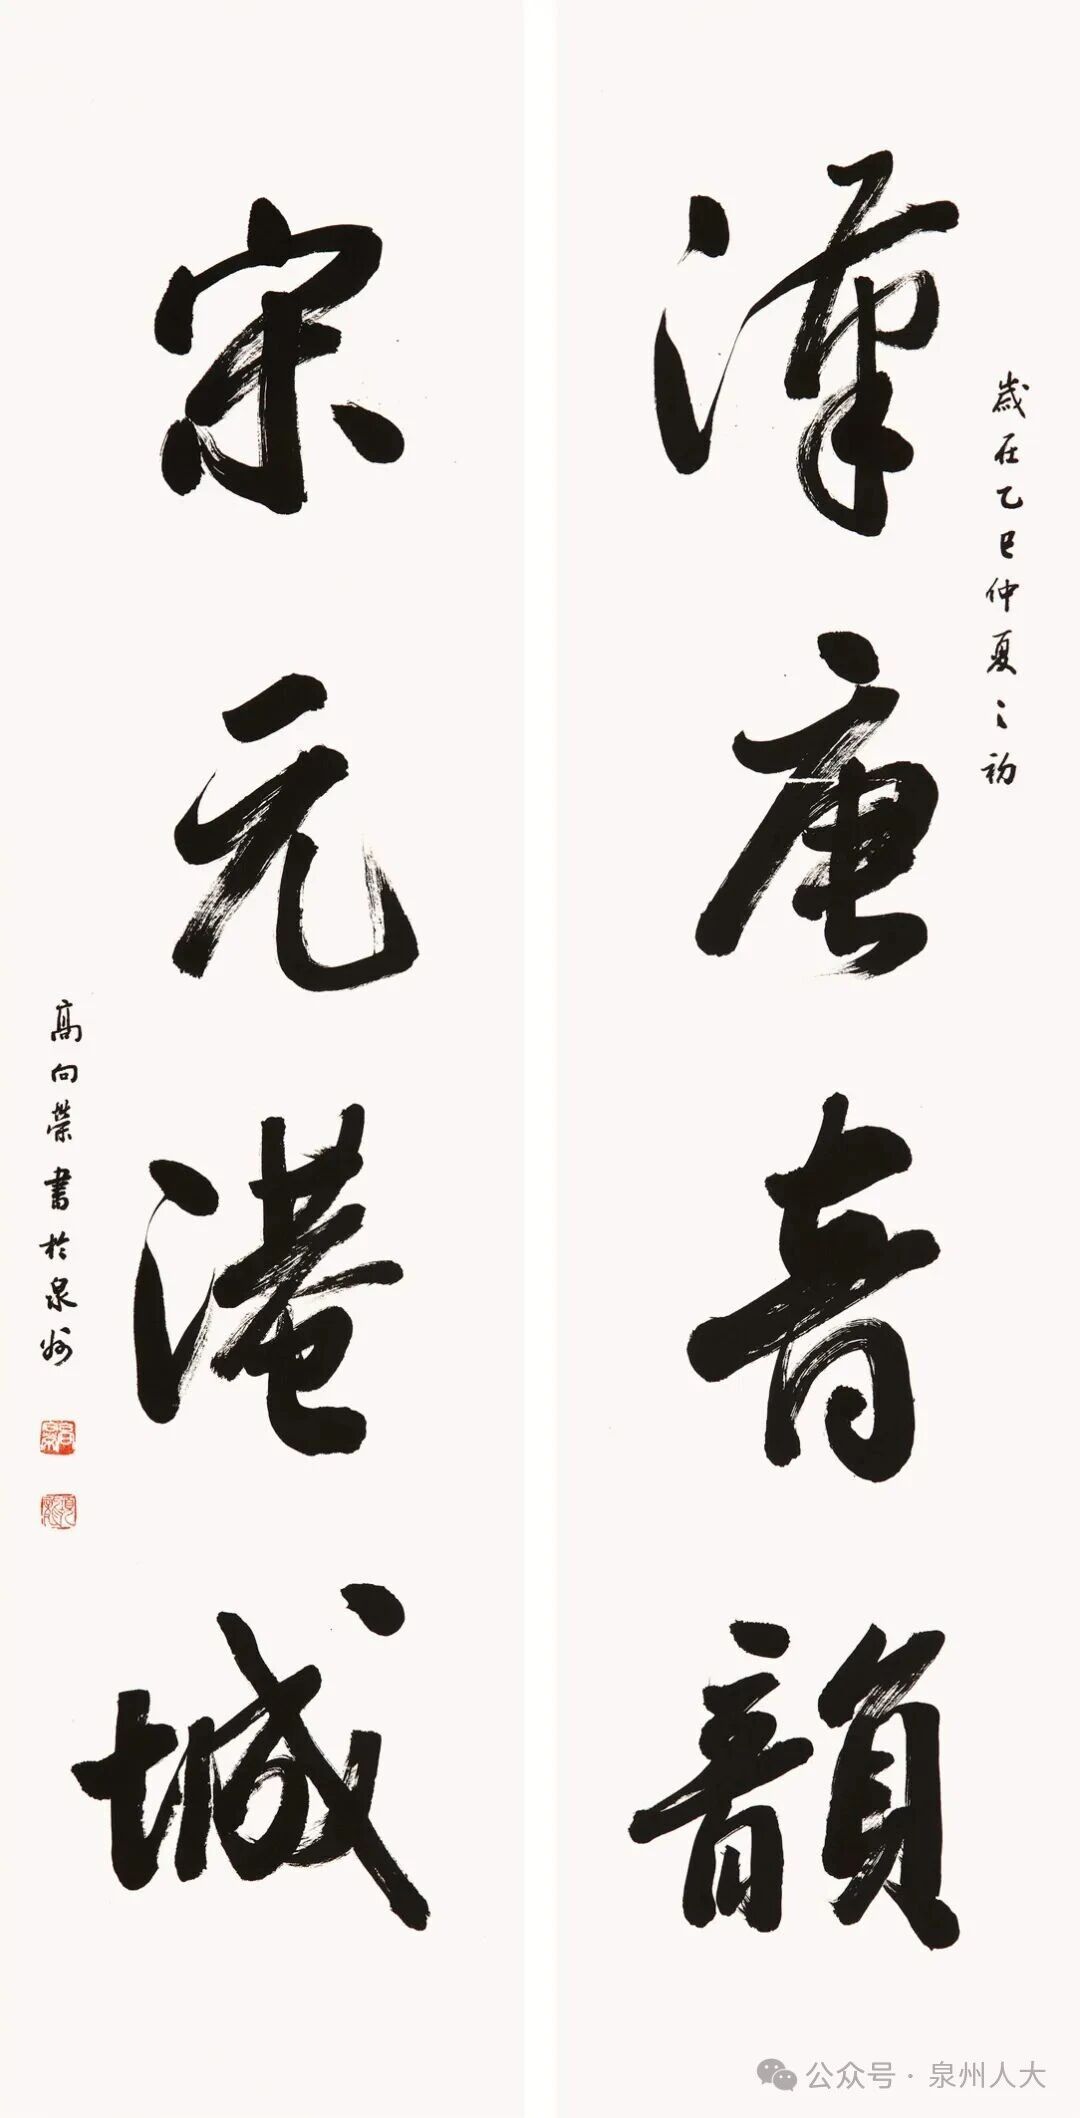 歲在乙巳仲夏之初
漢唐音韻
宋元港城
高向榮書於泉州
公众号·泉州人大